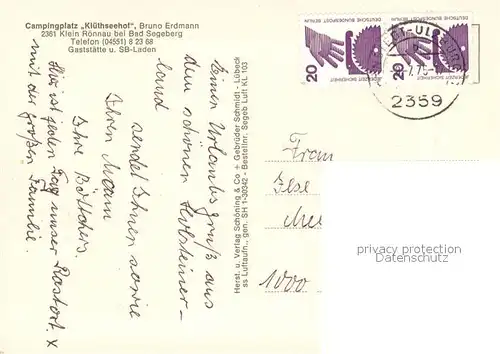 Campingplatz „Klüthseehof", Bruno Erdmann
2361 Klein Rönnau bei Bad Segeberg
Telefon (04551) 8 23 68
Gaststätte u. SB-Laden
Einen Urlaubsgruß aus
dem schönen Holsteiner-
land
sendet Ihnen sowie
Ihrem Mann
Ihre Böttchers.
Hier ist jeden Tag unser Rastort. X
mit der großen Familie.
Herst. u. Verlag Schöning & Co + Gebrüder Schmidt - Lübeck
ss Luftaufn., gen. SH 1-30342 - Bestellnr. Segeb Luft Kl. 103
DEUTSCHE BUNDESPOST BERLIN
JEDERZEIT SICHERHEIT
20
DEUTSCHE BUNDESPOST BERLIN
JEDERZEIT SICHERHEIT
20
2359
Frau
Ilse
1000
privacy protection
Datenschutz